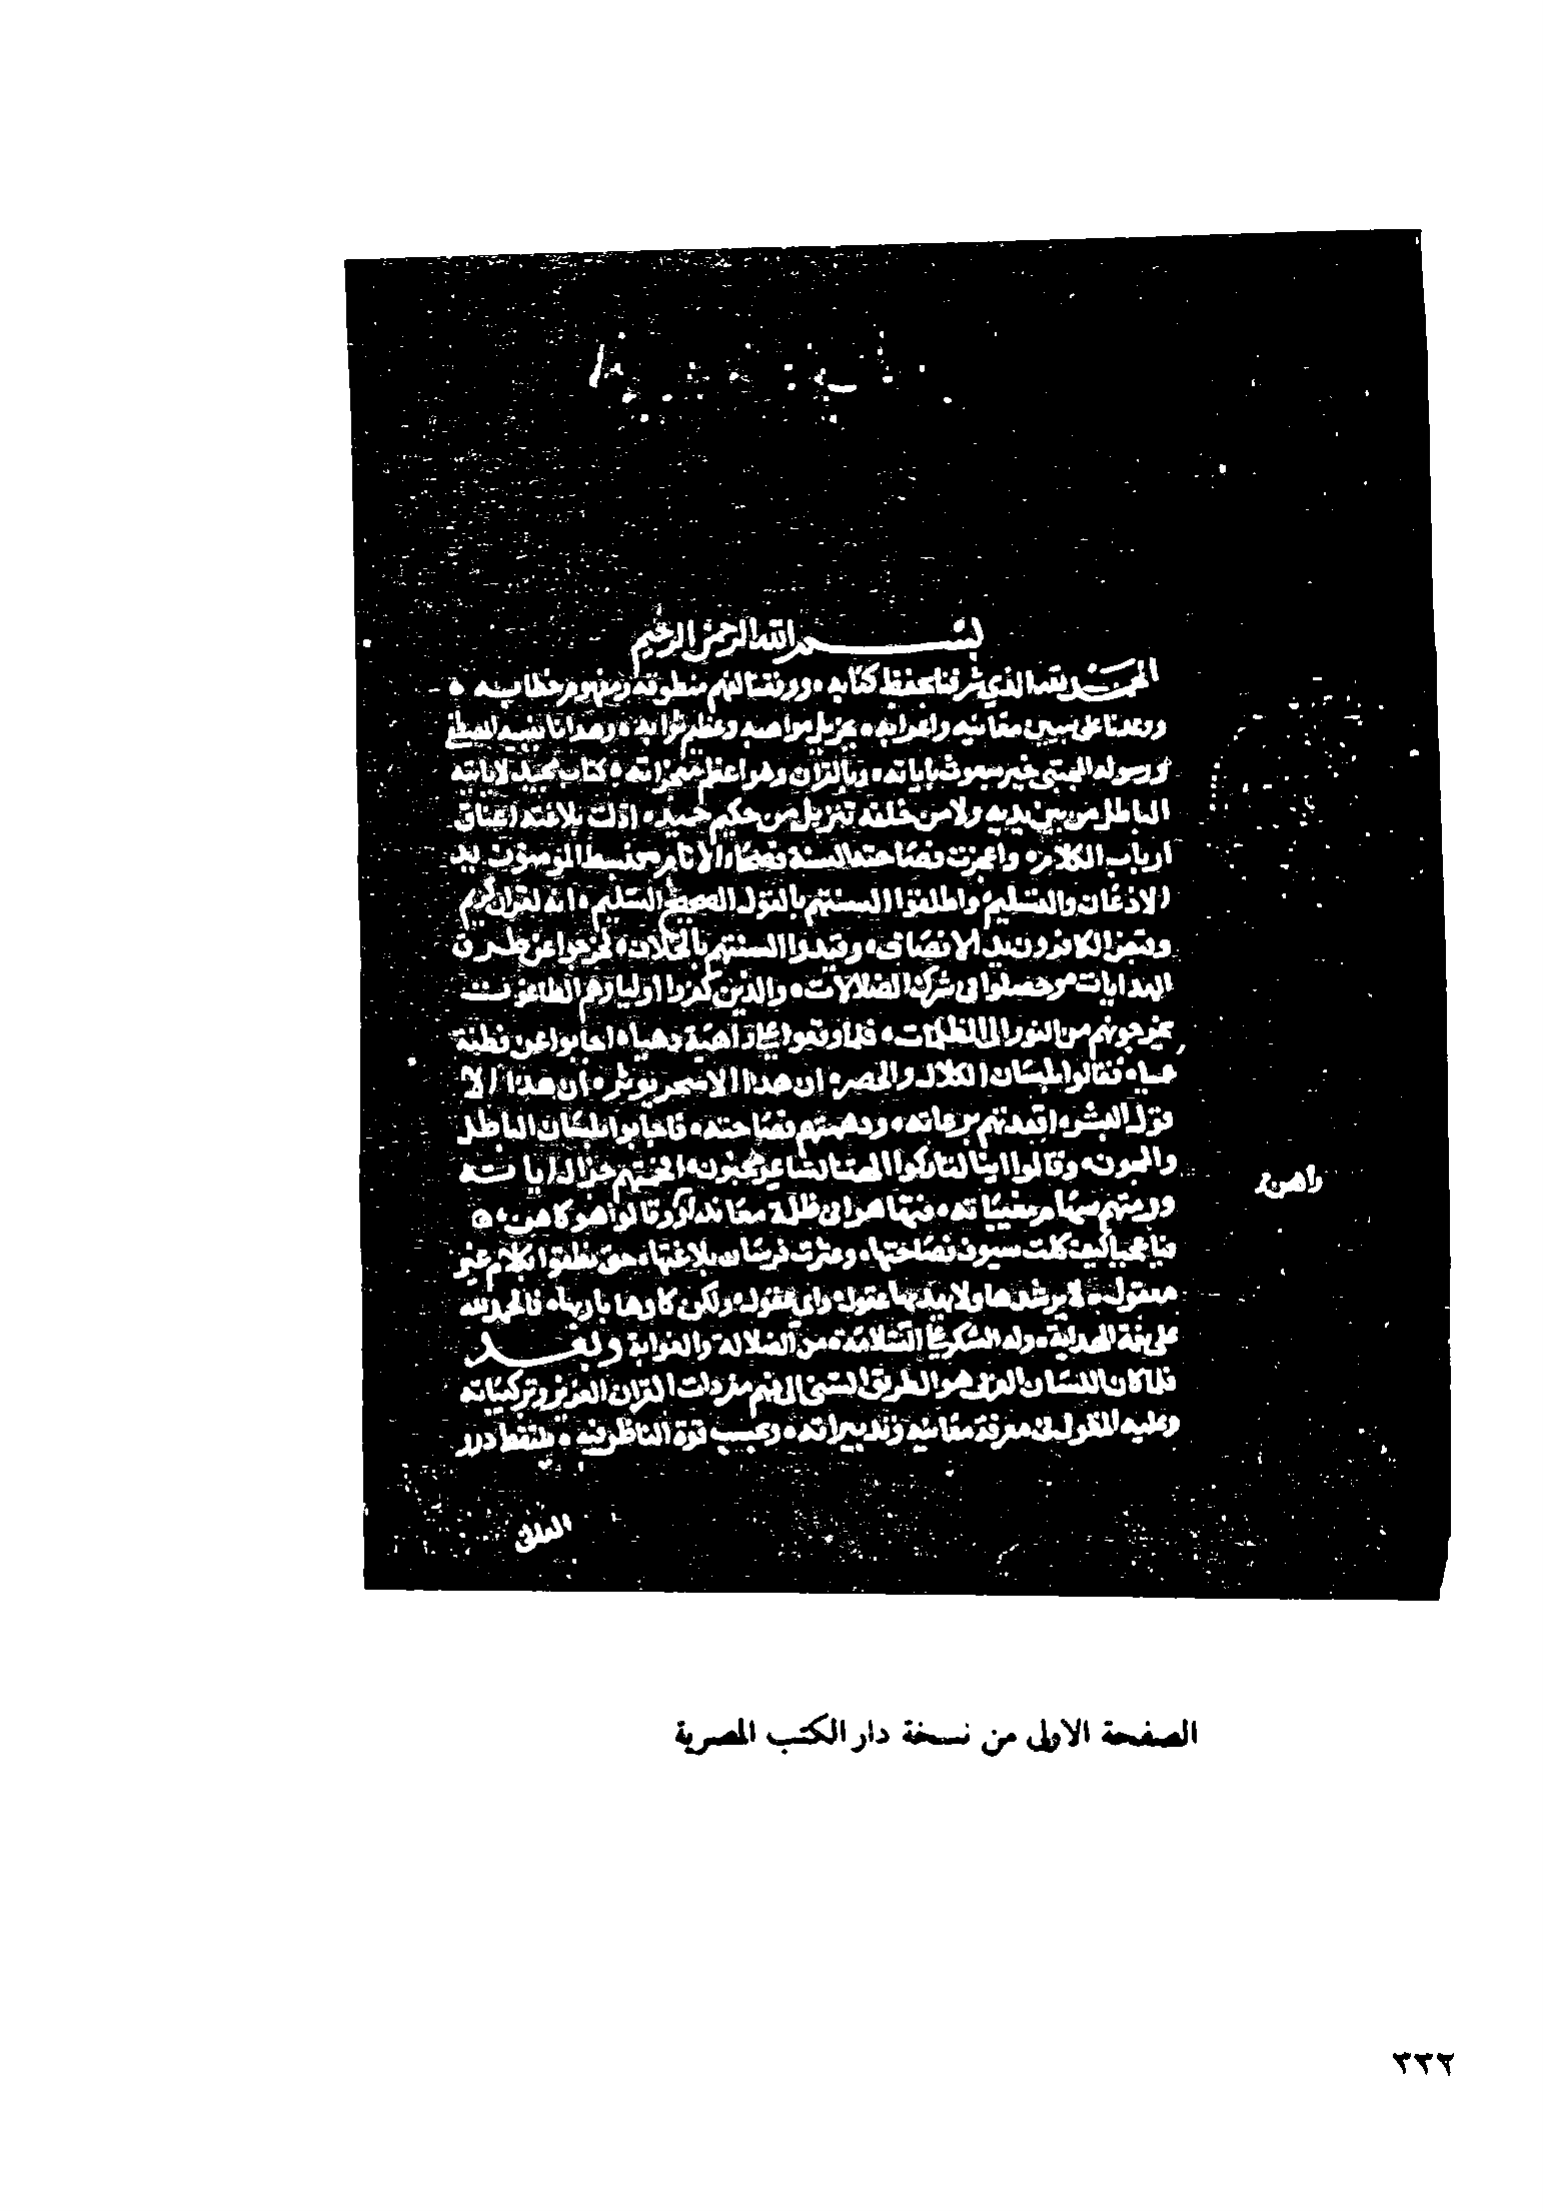 بسم الله الرحمن الرحيم
الحمد لله الذي شرفنا بحفظ كتابه ووفقنا لفهم منطوقه ومفهوم خطابه
ووعدنا على تبيين معانيه واعرابه جزيل مواهبه وعظيم ثوابه وهدانا بنبيه المصطفى
ورسوله المجتبى خير مبعوث باياته وبالقران وهو اعظم معجزاته كتاب مجيد لاياتيه
الباطل من بين يديه ولا من خلفه تنزيل من حكيم حميد اذلت بلاغته اعناق
ارباب الكلام واعجزت فصاحته السنة فصحاء الانام فبسط المومنون يد
الاذعان والتسليم واطلقوا السنتهم بالقول الصحيح السليم انه لقران كريم
وقبض الكافرون يد الانصاف وقيدوا السنتهم فخرجوا عن طرق
الهدايات وحصلوا في شرك الضلالات والذين كفروا اولياوهم الطاغوت
يخرجونهم من النور الى الظلمات فلما وقعوا في داهية دهياء اجابوا عن فطنة
عمياء فقالوا بلسان الكلال والحصر ان هذا الا سحر يوثر ان هذا الا
قول البشر اقعدتهم وفصاحته فاجابوا بلسان الباطل
والمجون وقالوا اينا لتاركوا الهتنا لشاعر مجنون اياته
ورمتهم سهام مغيباته في ظلمة وقالوا هو كاهن
فيا عجبا كيف كلت سيوف فصاحتها وعثرت فرسان بلاغتها حتى نطقوا بكلام غير
معقول لا يرشدها ولا يهديها عقول واي عقول ولكن كادها باريها فالحمد لله
على نعمة الهداية وله الشكر على السلامة من الضلالة والغواية وبعد
فلما كان اللسان العربي هو الطريق السني الى فهم مفردات القران العزيز وتركيباته
وعليه المعول في معرفة معانيه وتدبر اياته وبحسب قوة الناظر فيه يلتقط درر
الصفحة الاولى من نسخة دار الكتب المصرية
٣٣٢